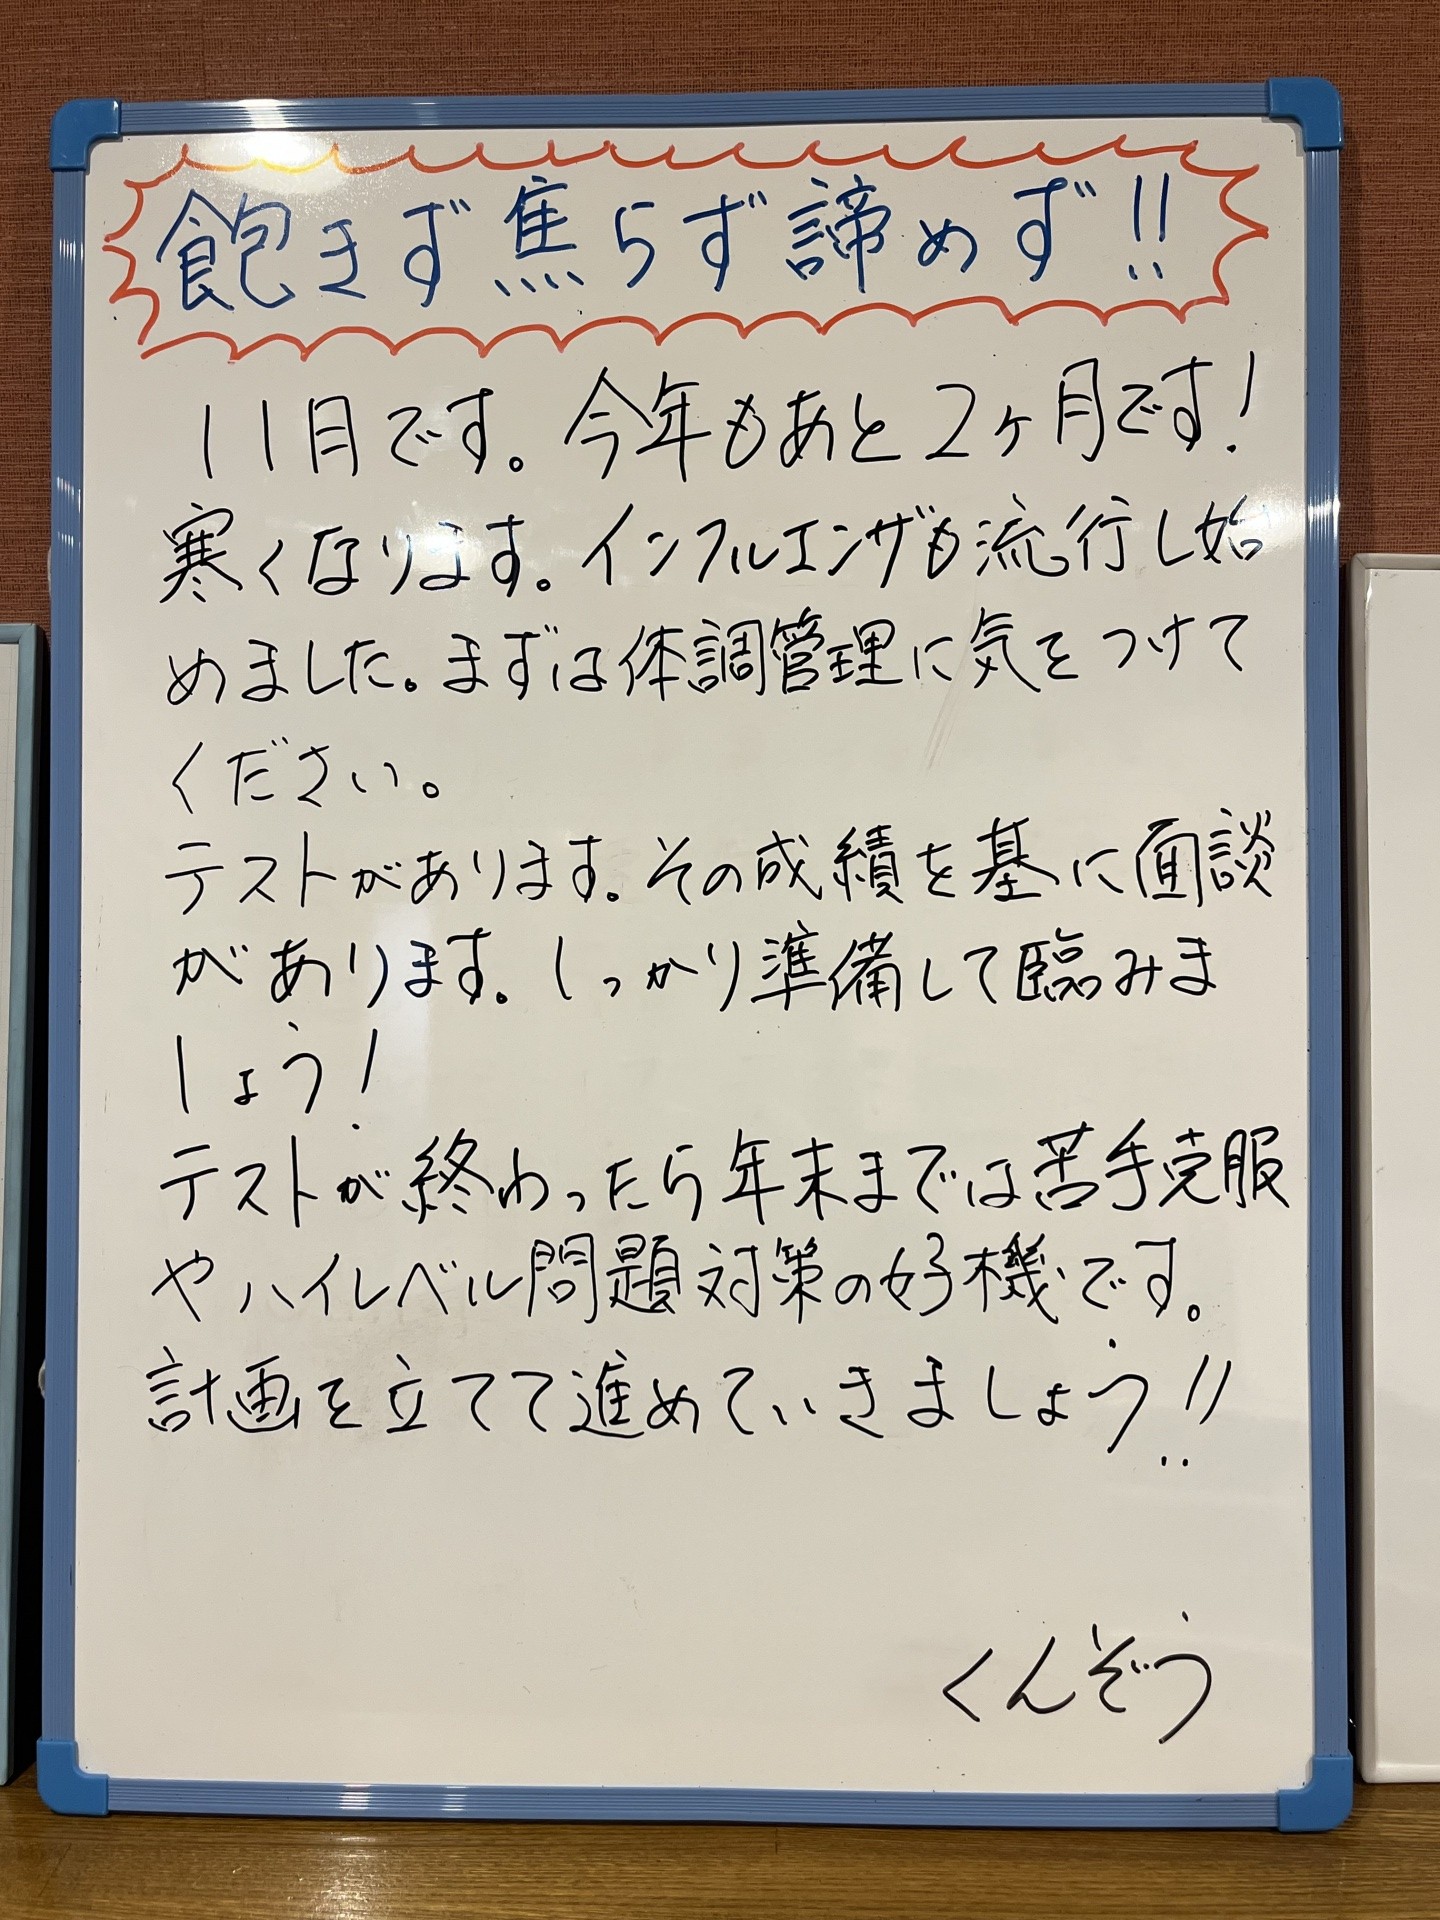 飽きず焦らず諦めず!!
11月です。今年もあと2ヶ月です!
寒くなります。インフルエンザも流行し始
めました。まずは体調管理に気をつけて
ください。
テストがあります。その成績を基に面談
があります。しっかり準備して臨みま
しょう!
テストが終わったら年末までは苦手克服
やハイレベル問題対策の好機です。
計画を立てて進めていきましょう!!
くんぞう